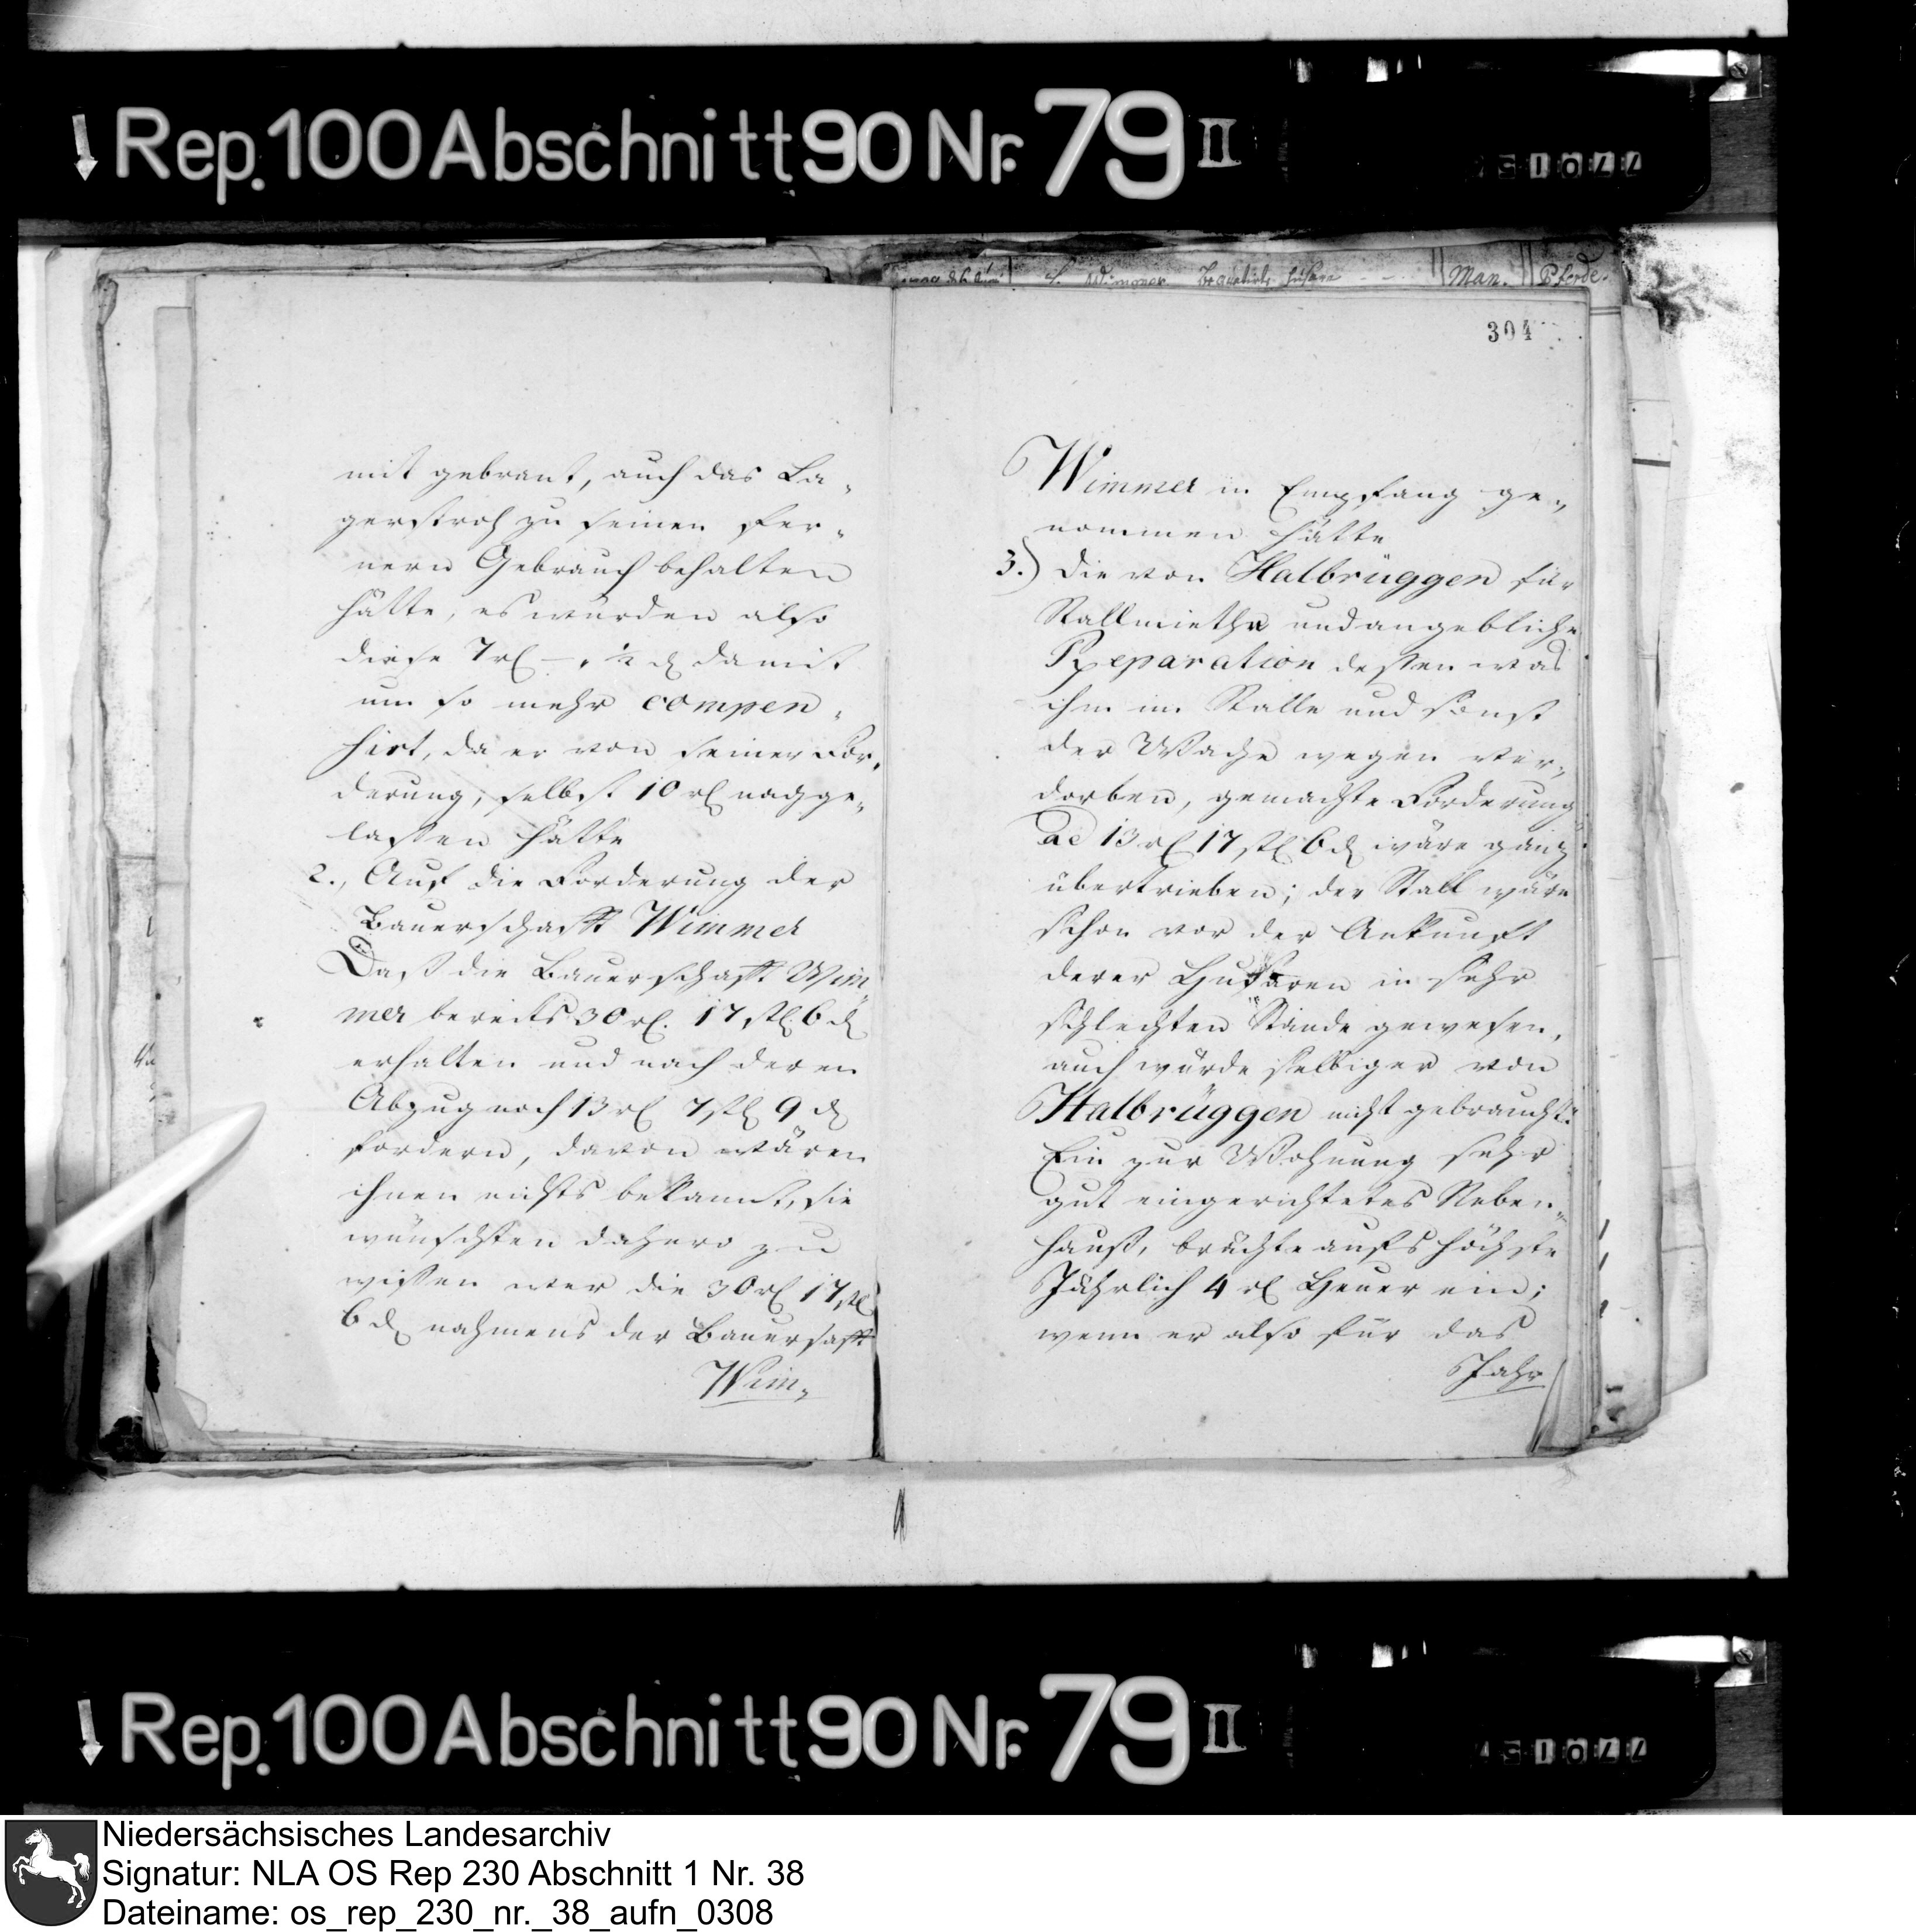 ↓ Rep. 100 Abschnitt 90 Nr. 79 II
Man. Pferde.
304
mit gebrant, auch das La„
gerstroh zu seinen fer„
nern Gebrauch behalten
hätte, es würden also
diese 7 rl – „ ½ d damit
um so mehr compen„
sirt, da er von seiner For„
derung, selbst 10 rl nachge„
lassen hätte
2., Auf die Forderung der
Bauerschafft Wimmer
Daß die Bauerschafft Wim„
mer bereits 30 rl. 17 ßl. 6 d
erhalten und nach deren
Abzug noch 13 rl 7 ßl 9 d
fordern, davon wären
ihnen nichts bekannt, sie
wünschten dahero zu
wissen wer die 30 rl 17 ßl
6 d nahmens der Bauersafft
Wim„
Wimmer in Empfang ge„
nommen hätte
3.) Die von Halbrüggen für
Stallmiethe und angebliche
Reparation dessen was
ihm im Stalle und sonst
der Wache wegen ver„
dorben, gemachte Forderung
ad 13 rl 17 ßl 6 d wäre ganz
übertrieben; der Stall wäre
schon vor der Ankunft
derer Husaren in sehr
schlechten Stande gewesen,
auch würde selbiger von
Halbrüggen nicht gebraucht.
Ein zur Wohnung sehr
gut eingerichtetes Neben„
hauß, brächte aufs höchste
Jährlich 4 rl Heuer ein;
wenn er also für das
Jahr
↓ Rep. 100 Abschnitt 90 Nr. 79 II
Niedersächsisches Landesarchiv
Signatur: NLA OS Rep 230 Abschnitt 1 Nr. 38
Dateiname: os_rep_230_nr._38_aufn_0308